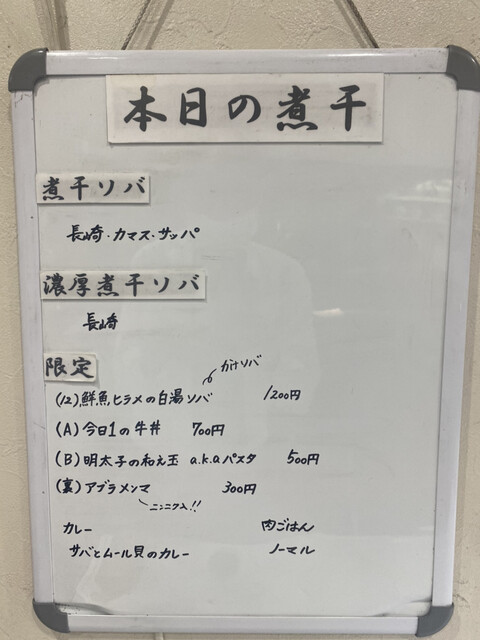 本日の煮干
煮干ソバ
長崎・カマス・サッパ
濃厚煮干ソバ
長崎
限定
かけソバ
(12)鮮魚ヒラメの白湯ソバ 1200円
(A)今日1の牛丼 700円
(B)明太子の和え玉 a.k.aパスタ 500円
(裏)アブラメンマ 300円
ニンニク入!!
カレー 肉ごはん
サバとムール貝のカレー ノーマル